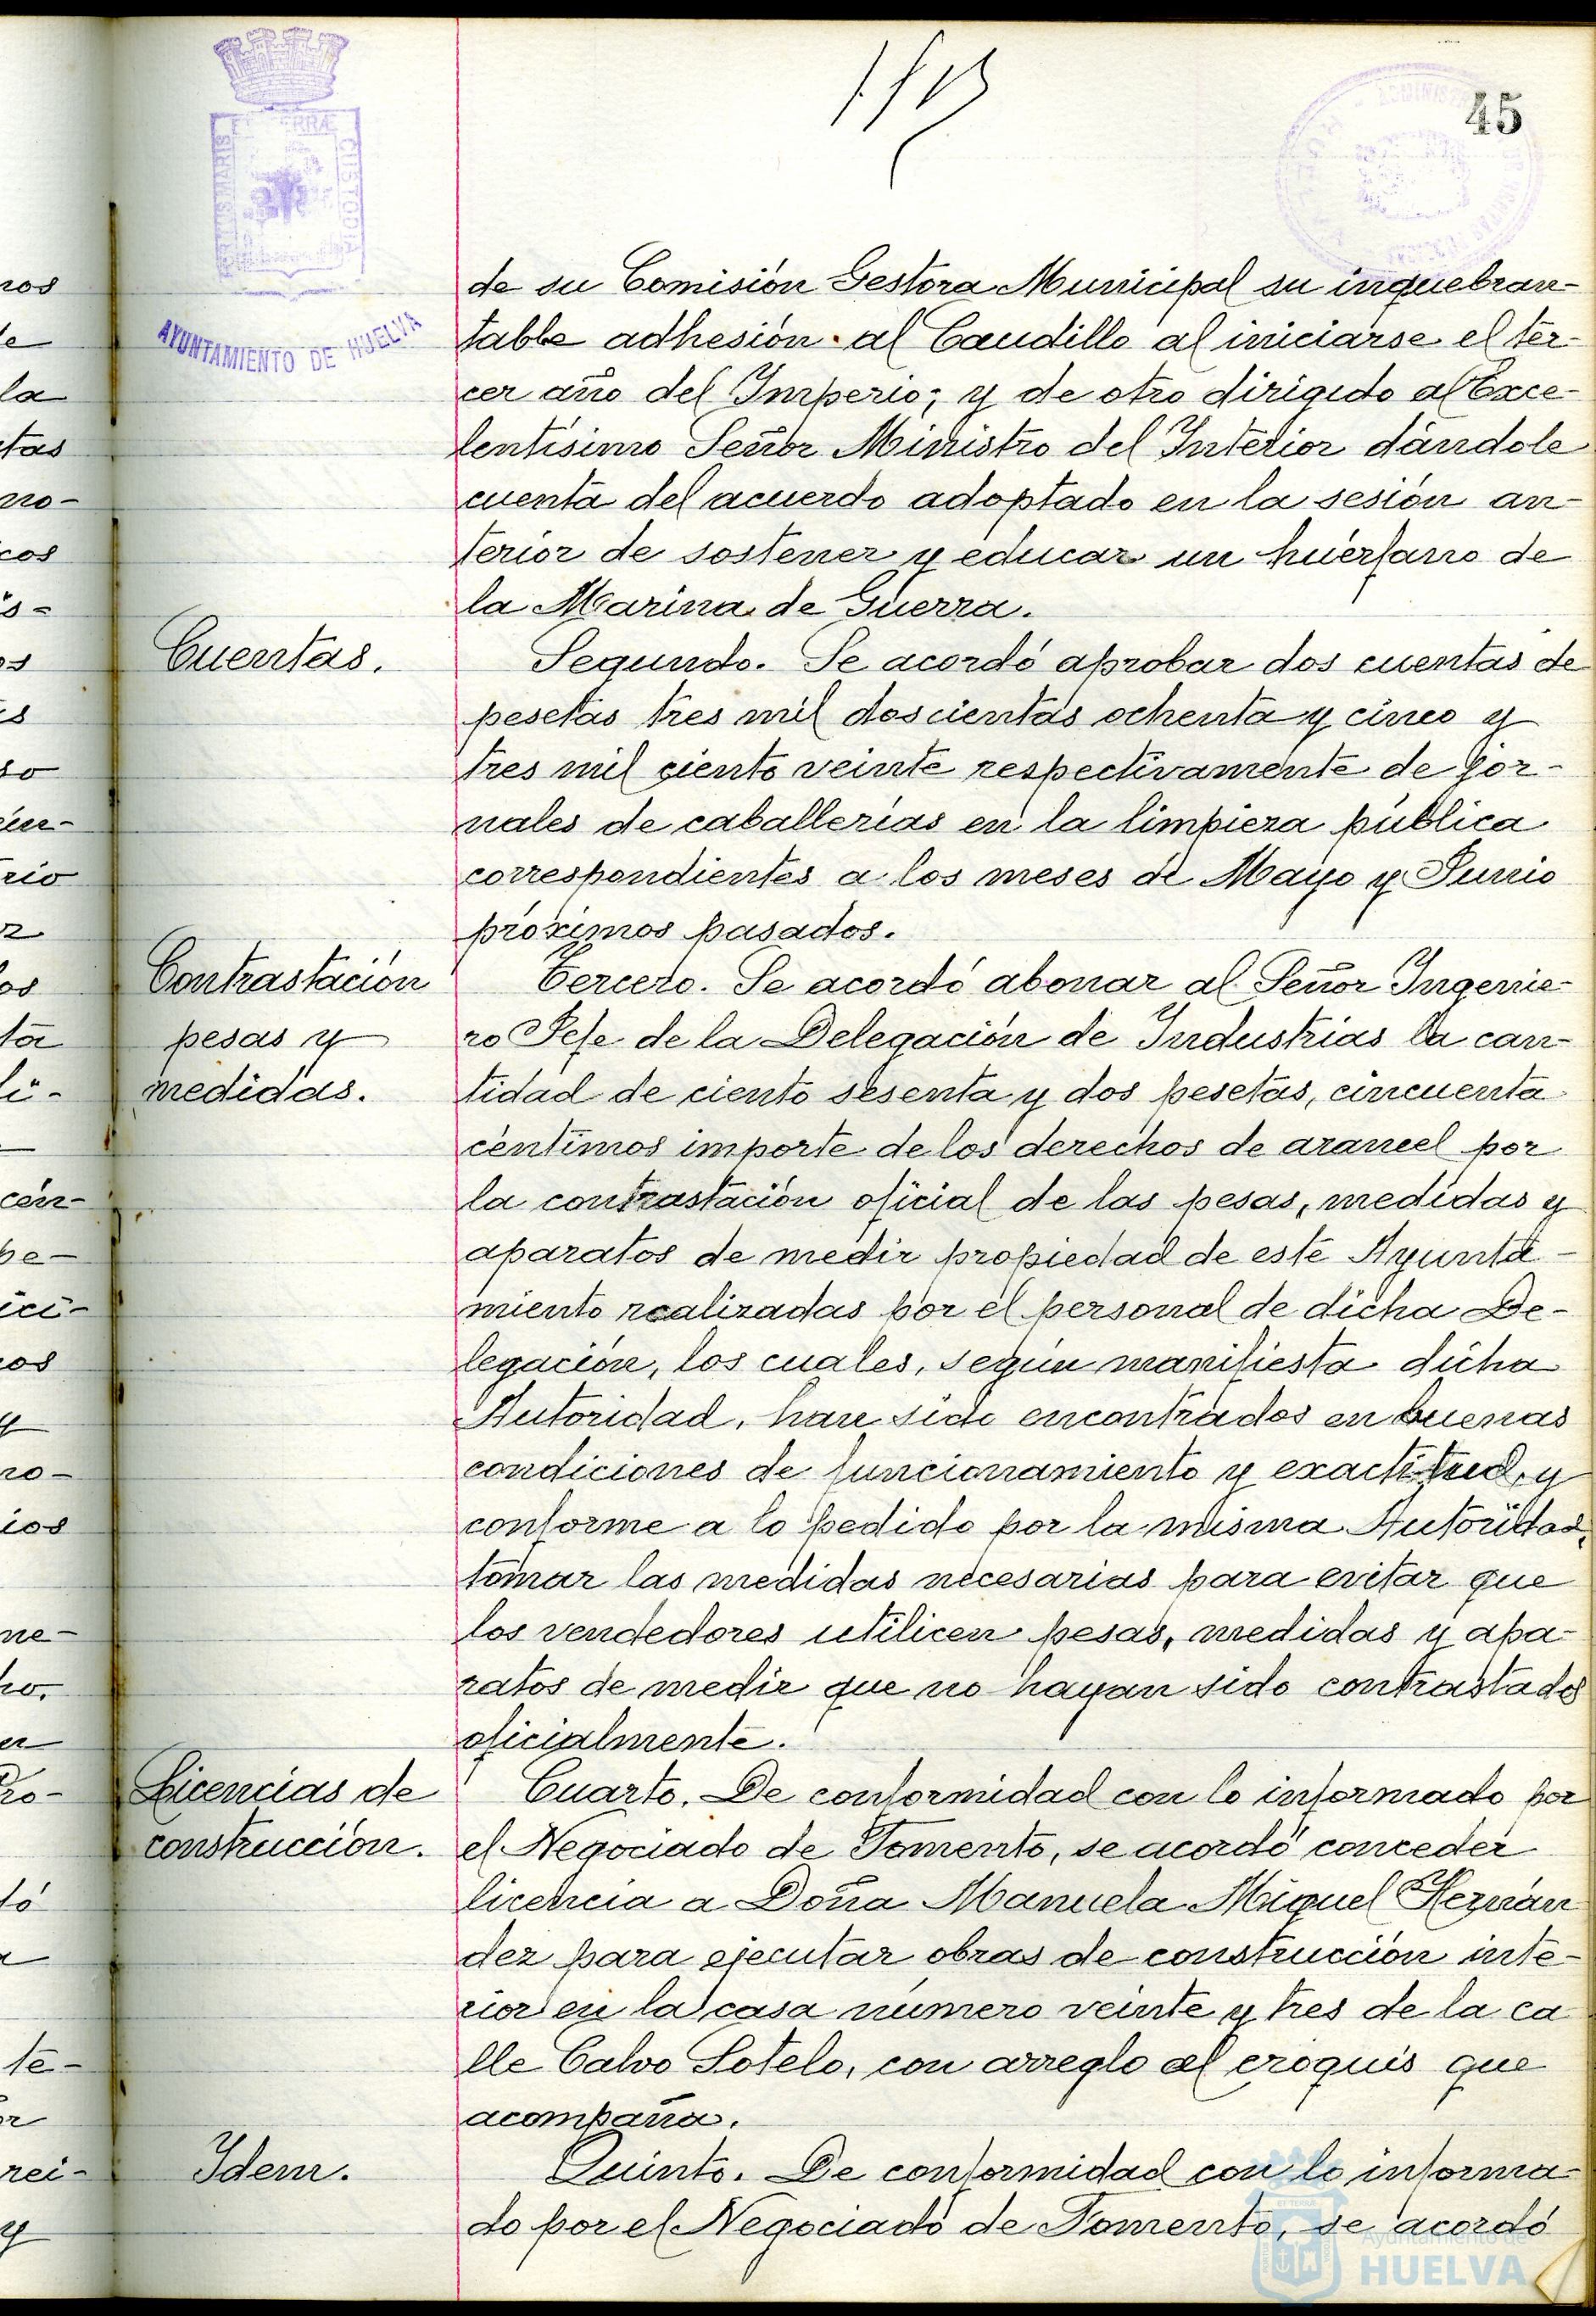 45
PORTUS MARIS
TERRÆ
CUSTODIA
AYUNTAMIENTO DE HUELVA
de su Comisión Gestora Municipal su inquebran-
table adhesión al Caudillo al iniciarse el ter-
cer año del Imperio; y de otro dirigido al Exce-
lentísimo Señor Ministro del Interior dándole
cuenta del acuerdo adoptado en la sesión an-
terior de sostener y educar un huérfano de
la Marina de Guerra.
Cuentas.
Segundo. Se acordó aprobar dos cuentas de
pesetas tres mil doscientas ochenta y cinco y
tres mil ciento veinte respectivamente de jor-
nales de caballerías en la limpieza pública
correspondientes a los meses de Mayo y Junio
próximos pasados.
Contrastación
pesas y
medidas.
Tercero. Se acordó abonar al Señor Ingenie-
ro Jefe de la Delegación de Industrias la can-
tidad de ciento sesenta y dos pesetas, cincuenta
centimos importe de los derechos de arancel por
la contrastación oficial de las pesas, medidas y
aparatos de medir propiedad de este Ayunta-
miento realizadas por el personal de dicha De-
legación, los cuales, según manifiesta dicha
Autoridad, han sido encontrados en buenas
condiciones de funcionamiento y exactitud, y
conforme a lo pedido por la misma Autoridad,
tomar las medidas necesarias para evitar que
los vendedores utilicen pesas, medidas y apa-
ratos de medir que no hayan sido contrastados
oficialmente.
Licencias de
construcción.
Cuarto. De conformidad con lo informado por
el Negociado de Fomento, se acordó conceder
licencia a Doña Manuela Miguel Hernán
dez para ejecutar obras de construcción inte-
rior en la casa número veinte y tres de la ca
lle Calvo Sotelo, con arreglo al croquis que
acompaña.
Idem.
Quinto. De conformidad con lo informa-
do por el Negociado de Fomento, se acordó
Ayuntamiento de
HUELVA